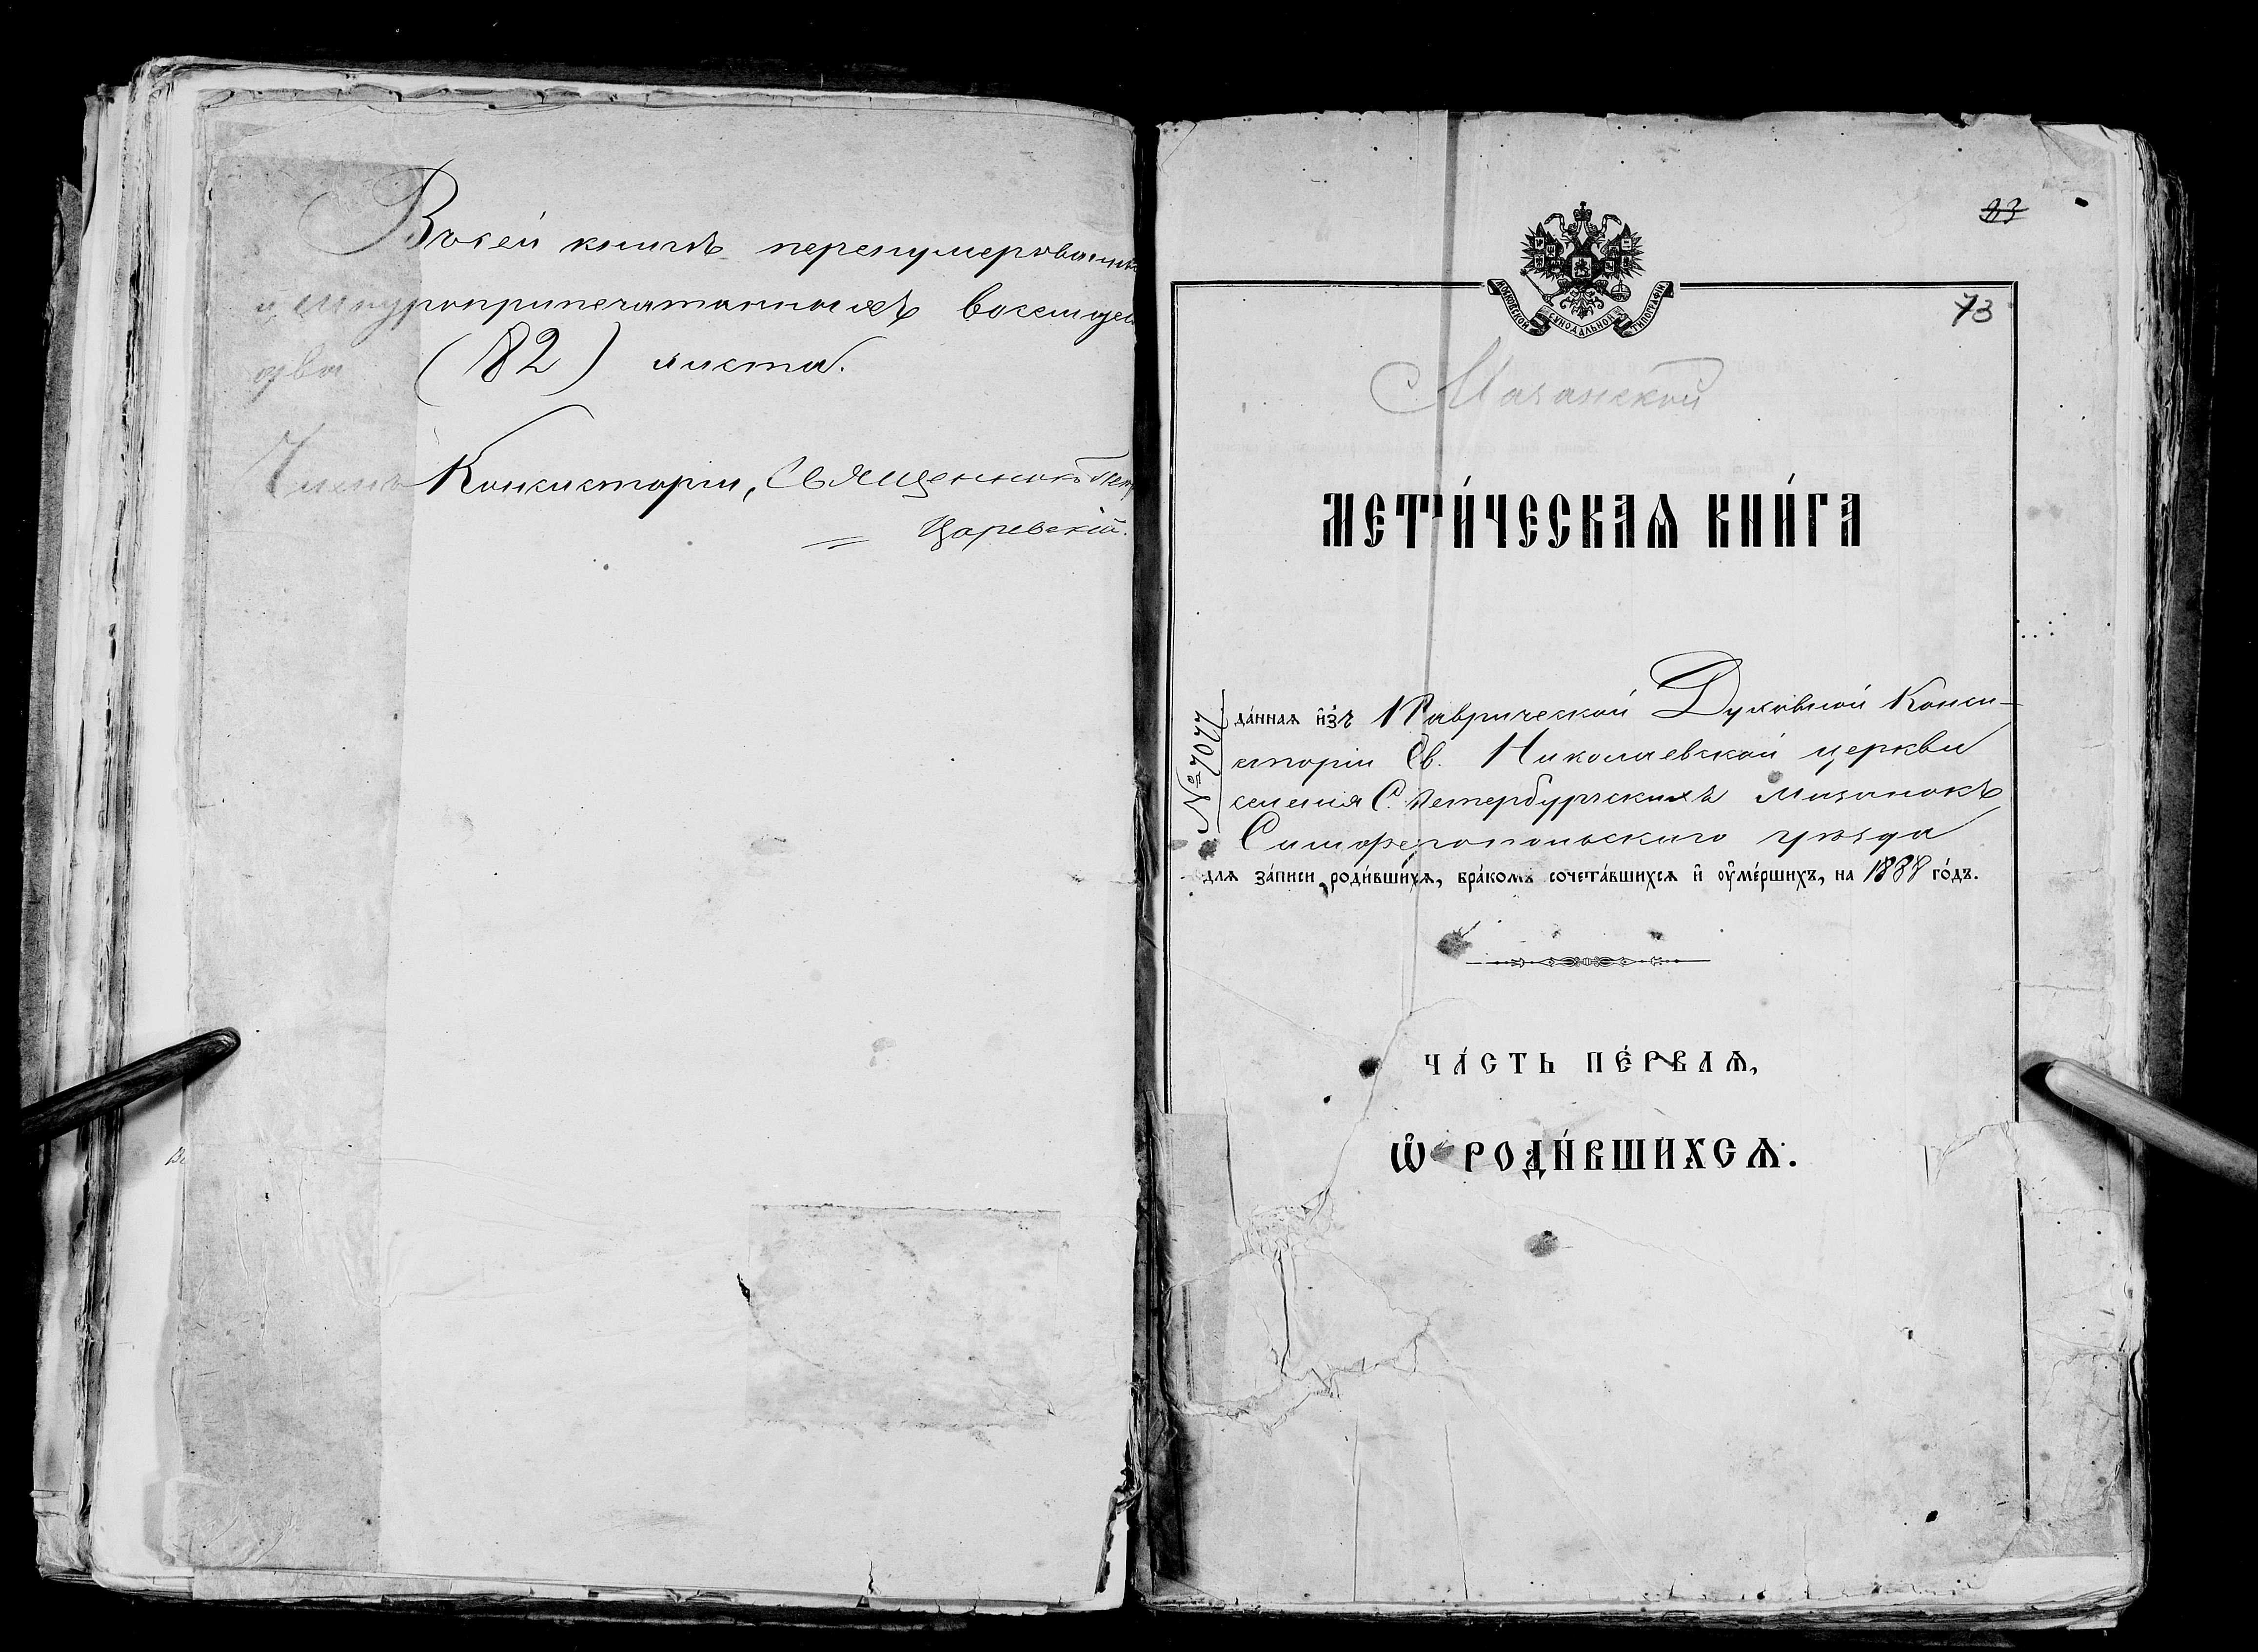 Въ сей книгѣ перенумерованн
и шнуроприпечатанныхъ восемьде
два (82) листа.
Членъ Консисторіи, Священникъ
Царевскій.
83
МОСКОВСКОЙ СѴНОДАЛЬНОЙ ТИПОГРАФІИ
73
Мазанской
МЕТРИ́ЧЕСКАѦ КНИ́ГА
№ 7077
да́ннаѧ и҆з̾ Таврической Духовной Конси-
сторіи Св. Николаевской церкви
селенія С. Петербургскихъ Мазанокъ
Симферопольскаго уѣзда
длѧ за́писи роди́вшихсѧ, бра́комъ сочета́вшихсѧ и҆ ᲂу҆ме́ршихъ, на 1888 го́дъ.
ЧА́СТЬ ПЕ́РВАѦ,
Ѡ҆ РОДИ́ВШИХСѦ.